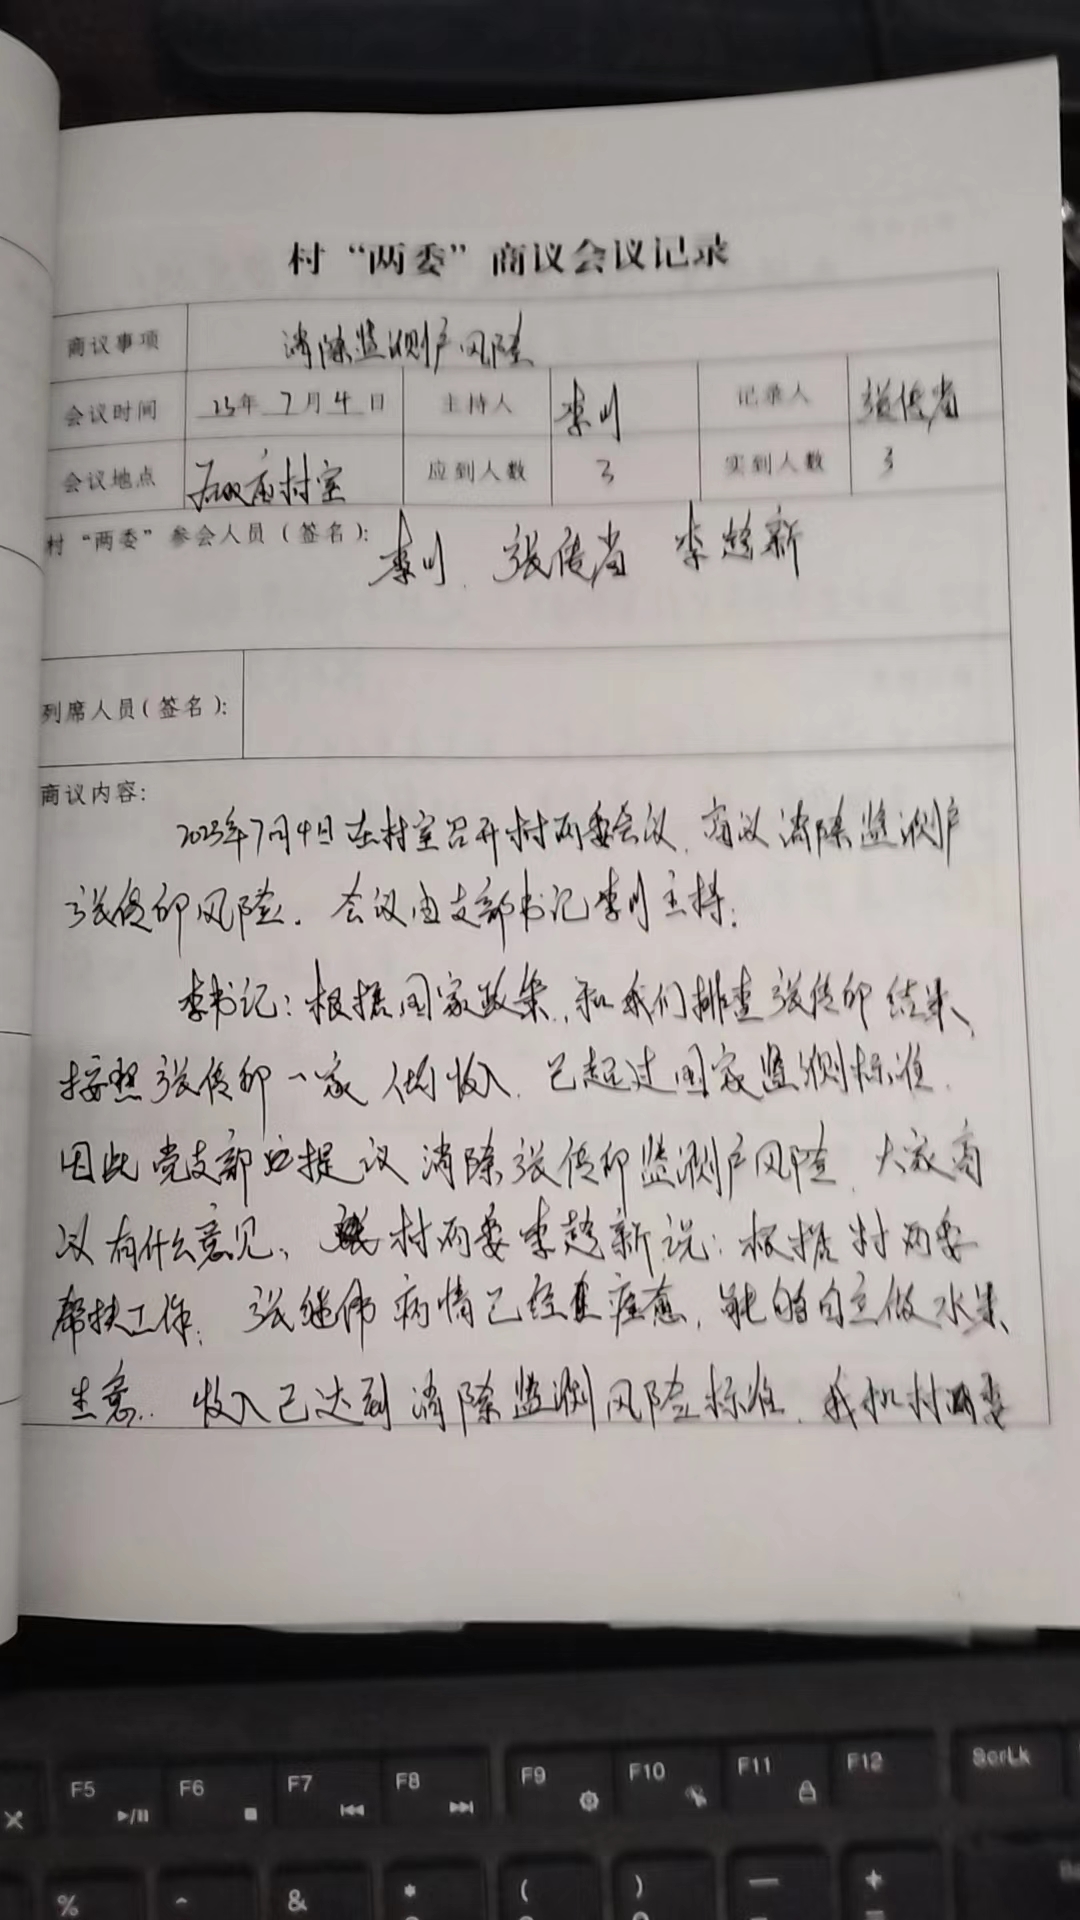 村“两委”商议会议记录
商议事项 消除监测户风险
会议时间 23年 7月 4日 主持人 李川 记录人 张传省
会议地点 庙村室 应到人数 3 实到人数 3
村“两委”参会人员(签名): 李川 张传省 李趁新
列席人员(签名):
商议内容:
2023年7月4日在村室召开村两委会议，商议消除监测户
张传印风险。会议由支部书记李川主持。
李书记：根据国家政策，和我们排查张传印结果，
按照张传印一家人均收入，已超过国家监测标准，
因此党支部提议消除张传印监测户风险，大家商
议有什么意见。村两委李趁新说：根据村两委
帮扶工作，张继伟病情已经痊愈，能自主做水果
生意，收入已达到消除监测风险标准，我村两委
F5 F6 F7 F8 F9 F10 F11 F12 ScrLk
% ^ & * ( ) — +